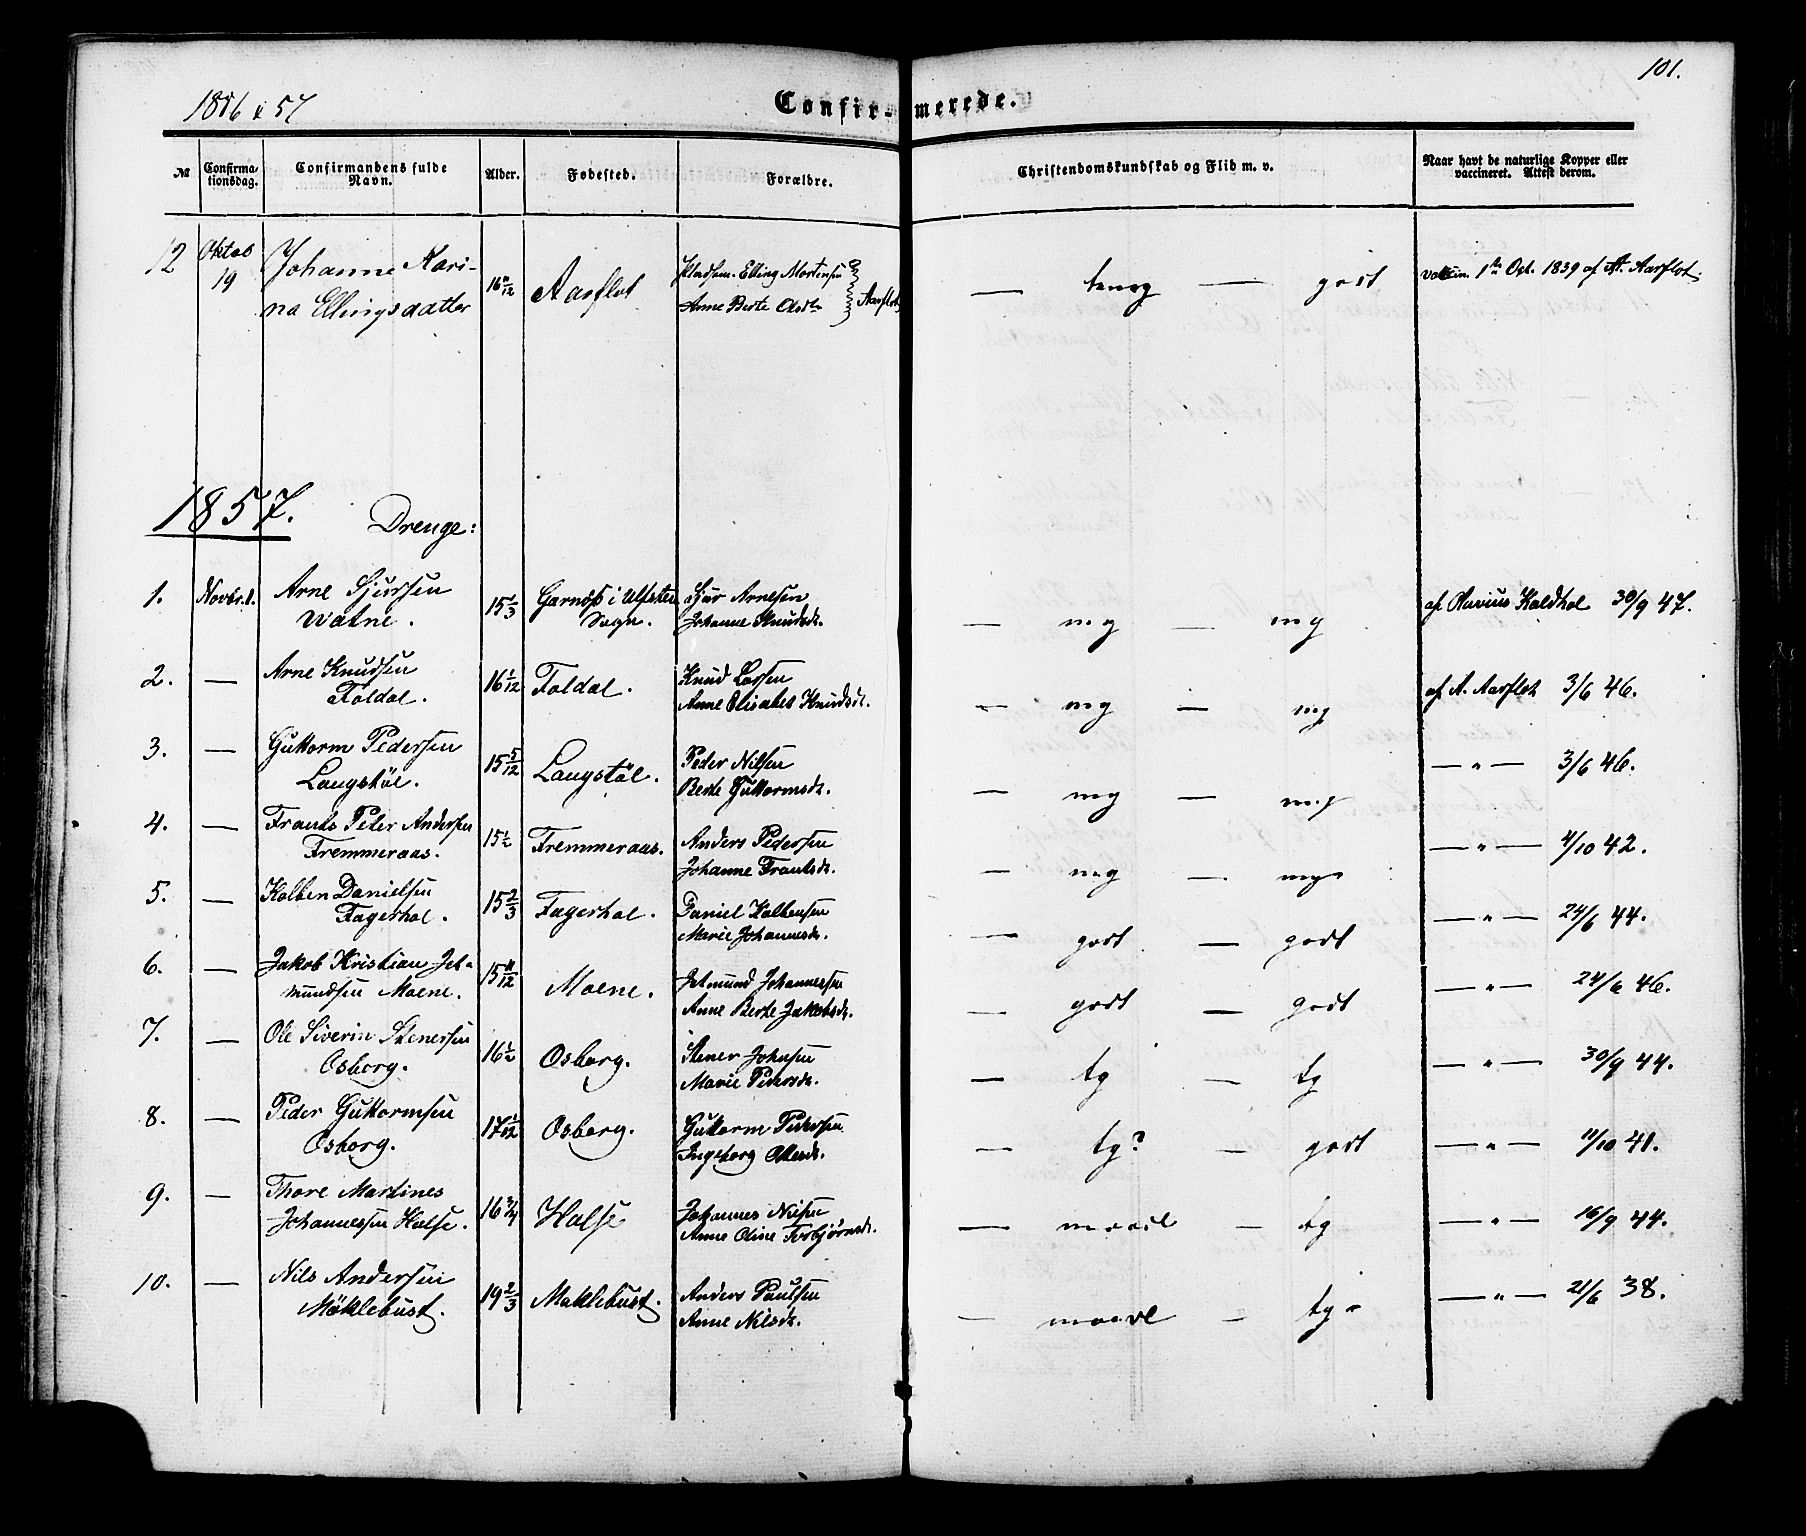 1856 & 57 Confirmerede. 101.
№ Confirmationsdag. Confirmandens fulde Navn. Alder. Fødested. Forældre. Christendomskundskab og Flid m. v. Naar havt de naturlige Kopper eller vaccineret. Attest derom.
12 Oktob 19 Johanne Kari-
na Ellingsdatter 16 11/12 Aarflot
Elling Mortensen
Anne Berte Olsdr } Aarflot
— temg — godt
vaccin. 1ste Oct. 1839 af A. Aarflot.
1857. Drenge:
1. Novbr. 1. Arne Sjursen
Watne. 15 1/3 Garnæs i Ulfsten
Sogn.
Sjur Arnesen
Johanne Knudsdr.
— mg — mg
af Rasius Kaldhol 30/9 47.
2. — Arne Knudsen
Foldal. 16 1/12 Foldal.
Knud Larsen
Anne Elisabet Knudsdr.
— mg — mg
af A. Aarflot 3/6 46.
3. — Guttorm Pedersen
Langstøl. 15 5/12 Langstøl.
Peder Nilsen
Berte Guttormsdr.
— mg — mg
— " — 3/6 46.
4. — Frants Peter Andersen
Fremmeraas. 15 1/2 Fremmeraas.
Anders Pedersen
Johanne Frantsdr.
— mg — mg
— " — 4/10 42.
5. — Kolben Danielsen
Fagerhol. 15 2/3 Fagerhol.
Daniel Kolbensen
Marie Johannesdr.
— godt — godt
— " — 24/6 44.
6. — Jakob Kristian Jet-
mundsen Moene. 15 11/12 Moene.
Jetmund Johannessen
Anne Berte Jakobsdr.
— godt — godt
— " — 24/6 46.
7. — Ole Siverin Stenersen
Osborg. 16 1/2 Osborg.
Stener Johnsen
Marie Pedersdr.
— tg — tg
— " — 30/9 44.
8. — Peder Guttormsen
Osborg. 17 1/12 Osborg.
Guttorm Pedersen
Ingeborg Olsdr.
— tg? — godt
— " — 11/10 41.
9. — Thore Martines
Johannessen Halse. 16 3/4 Halse
Johannes Nilsen
Anne Oline Torbjørnsdr.
— maadl — tg
— " — 16/9 44.
10. — Nils Andersen
Møklebust. 19 2/3 Møklebust.
Anders Paulsen
Anne Nilsdr.
— maadl — tg
— " — 21/6 38.